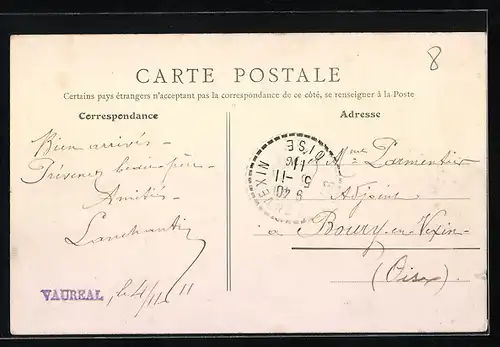 8
CARTE POSTALE
Certains pays étrangers n'acceptant pas la correspondance de ce côté, se renseigner à la Poste
Correspondance
Adresse
Bien arrivés -
Prévenez beau-père -
Amitiés -
VAUREAL, le 4/11 11
Mme Parmentier
Adjoint
à Boury-en-Vexin
(Oise)
9 40
5 - 11
11
OISE